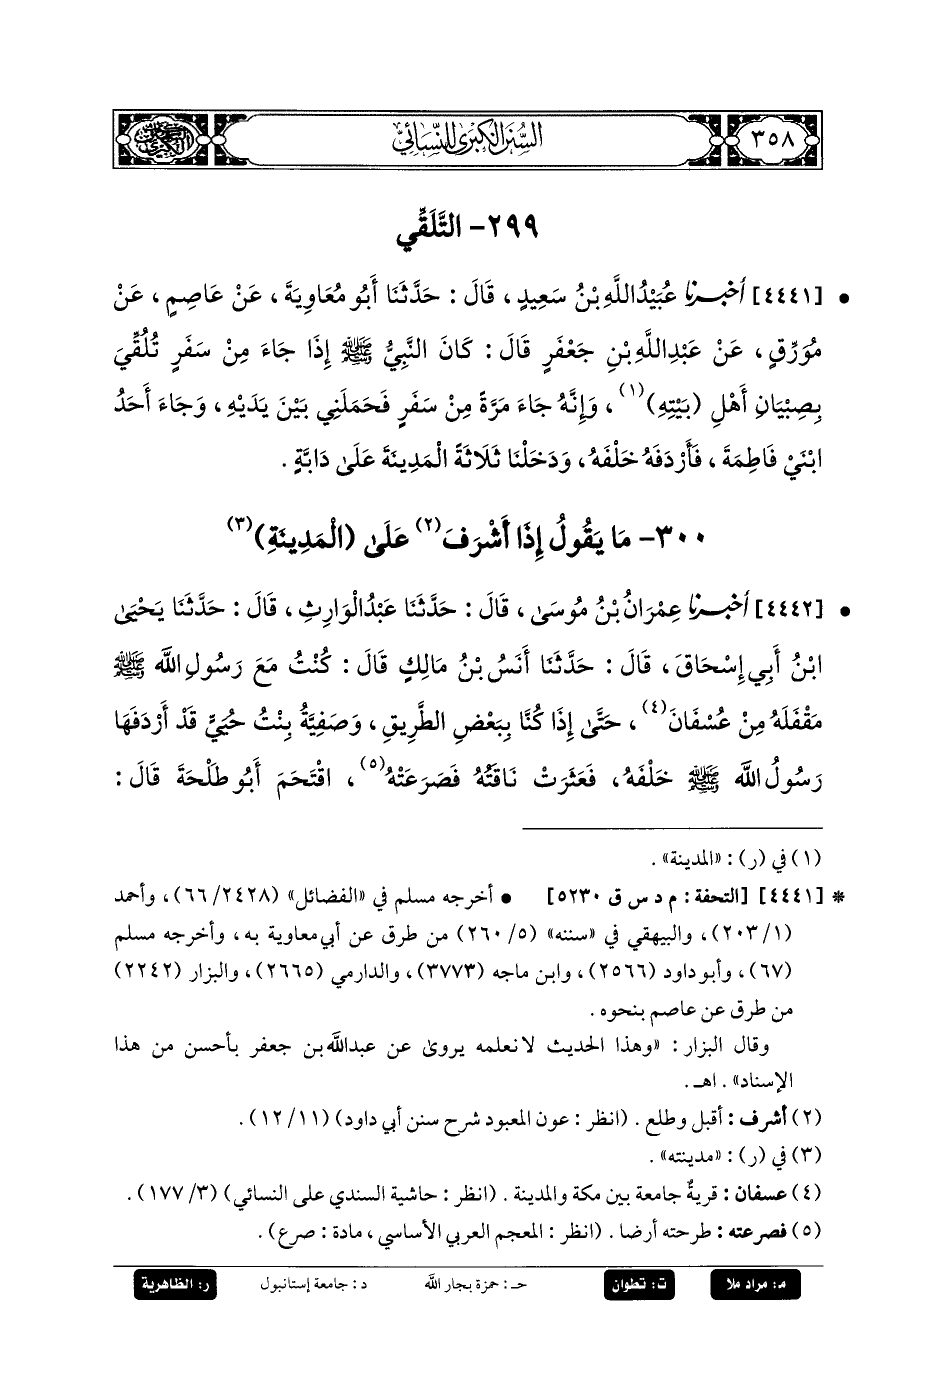 ٣٥٨
السنن الكبرى للنسائي
٢٩٩- التَّلَقِّي
• [٤٤٤١] أخبرنا عُبَيْدُاللَّهِ بْنُ سَعِيدٍ، قَالَ: حَدَّثَنَا أَبُو مُعَاوِيَةَ، عَنْ عَاصِمٍ، عَنْ
مُوَرِّقٍ، عَنْ عَبْدِاللَّهِ بْنِ جَعْفَرٍ قَالَ: كَانَ النَّبِيُّ ﷺ إِذَا جَاءَ مِنْ سَفَرٍ تُلُقِّيَ
بِصِبْيَانِ أَهْلِ (بَيْتِهِ)(١)، وَإِنَّهُ جَاءَ مَرَّةً مِنْ سَفَرٍ فَحَمَلَنِي بَيْنَ يَدَيْهِ، وَجَاءَ أَحَدُ
ابْنَيْ فَاطِمَةَ، فَأَرْدَفَهُ خَلْفَهُ، وَدَخَلْنَا ثَلَاثَةً الْمَدِينَةَ عَلَى دَابَّةٍ.
٣٠٠- مَا يَقُولُ إِذَا أَشْرَفَ(٢) عَلَى (الْمَدِينَةِ)(٣)
• [٤٤٤٢] أخبرنا عِمْرَانُ بْنُ مُوسَى، قَالَ: حَدَّثَنَا عَبْدُ الْوَارِثِ، قَالَ: حَدَّثَنَا يَحْيَى
ابْنُ أَبِي إِسْحَاقَ، قَالَ: حَدَّثَنَا أَنَسُ بْنُ مَالِكٍ قَالَ: كُنْتُ مَعَ رَسُولِ اللَّهِ ﷺ
مَقْفَلَهُ مِنْ عُسْفَانَ(٤)، حَتَّى إِذَا كُنَّا بِبَعْضِ الطَّرِيقِ، وَصَفِيَّةُ بِنْتُ حُيَيٍّ قَدْ أَرْدَفَهَا
رَسُولُ اللَّهِ ﷺ خَلْفَهُ، فَعَثَرَتْ نَاقَتُهُ فَصَرَعَتْهُ(٥)، اقْتَحَمَ أَبُو طَلْحَةَ قَالَ:
(١) في (ر): «المدينة».
* [٤٤٤١] [التحفة: م د س ق ٥٢٣٠] • أخرجه مسلم في «الفضائل» (٦٦/٢٤٢٨)، وأحمد
(٢٠٣/١)، والبيهقي في «سننه» (٢٦٠/٥) من طرق عن أبي معاوية به، وأخرجه مسلم
(٦٧)، وأبو داود (٢٥٦٦)، وابن ماجه (٣٧٧٣)، والدارمي (٢٦٦٥)، والبزار (٢٢٤٢)
من طرق عن عاصم بنحوه.
وقال البزار: «وهذا الحديث لا نعلمه يروى عن عبدالله بن جعفر بأحسن من هذا
الإسناد». اهـ.
(٢) أشرف: أقبل وطلع. (انظر: عون المعبود شرح سنن أبي داود) (١٢/١١).
(٣) في (ر): «مدينته».
(٤) عسفان: قريةٌ جامعة بين مكة والمدينة. (انظر: حاشية السندي على النسائي) (١٧٧/٣).
(٥) فصرعته: طرحته أرضا. (انظر: المعجم العربي الأساسي، مادة: صرع).
م: مراد ملا ت: تطوان حـ: حمزة بجار الله د: جامعة إستانبول ر: الظاهرية